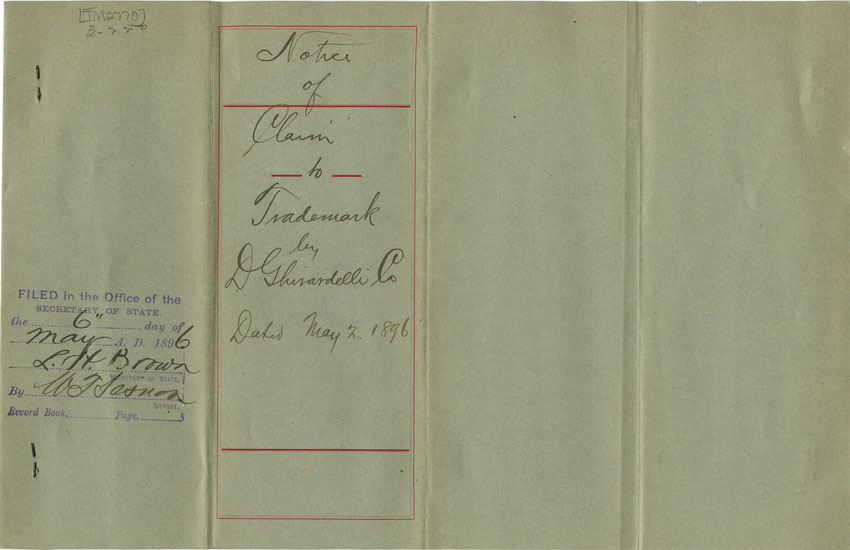 [TM2770]
Notice
of
Claim
to
Trademark
by
D Ghirardelli Co
Dated May 2. 1896
FILED in the Office of the
SECRETARY OF STATE.
the 6" day of
May A. D. 1896
L. H. Brown
SECRETARY OF STATE.
By W T Sesnon
DEPUTY.
Record Book, Page,